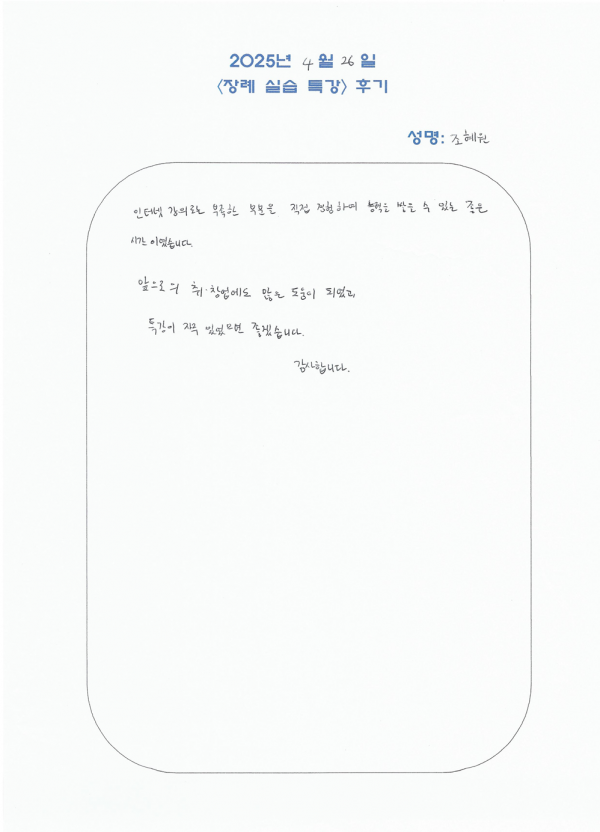 2025년 4월 26일
<장례 실습 특강> 후기
성명: 조혜원
인터넷 강의로는 부족한 부분을 직접 경험하며 능력을 받을 수 있는 좋은
시간 이였습니다.
앞으로의 취·창업에도 많은 도움이 되었고,
특강이 자주 있었으면 좋겠습니다.
감사합니다.